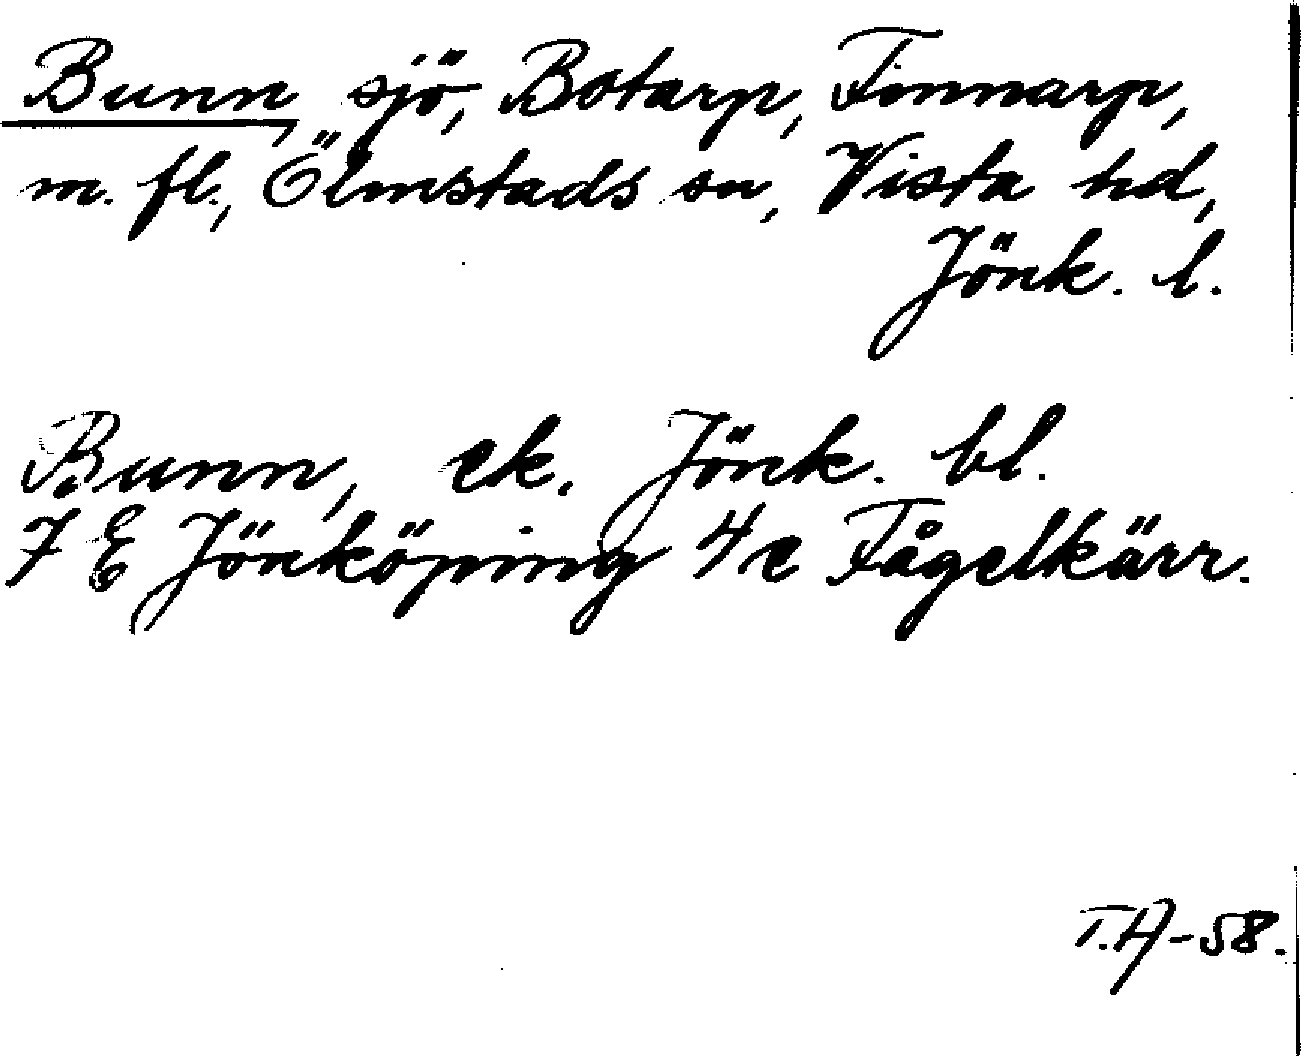 Bunn, sjö, Botarp, Finnarp,
m. fl., Ölmstads sn, Vista hd,
Jönk. l.
Bunn, ek. Jönk. bl.
7 E Jönköping 4e Fågelkärr.
T.A-58.